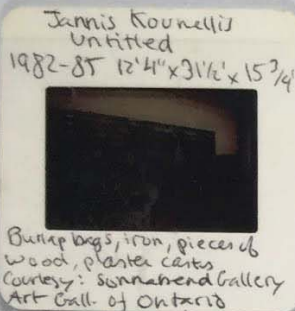 Jannis Kounellis
Untitled
1982-85 12'4" x 31½' x 15¾"
Burlap bags, iron, pieces of
wood, plaster casts
Courtesy: Sonnabend Gallery
Art Gall. of Ontario